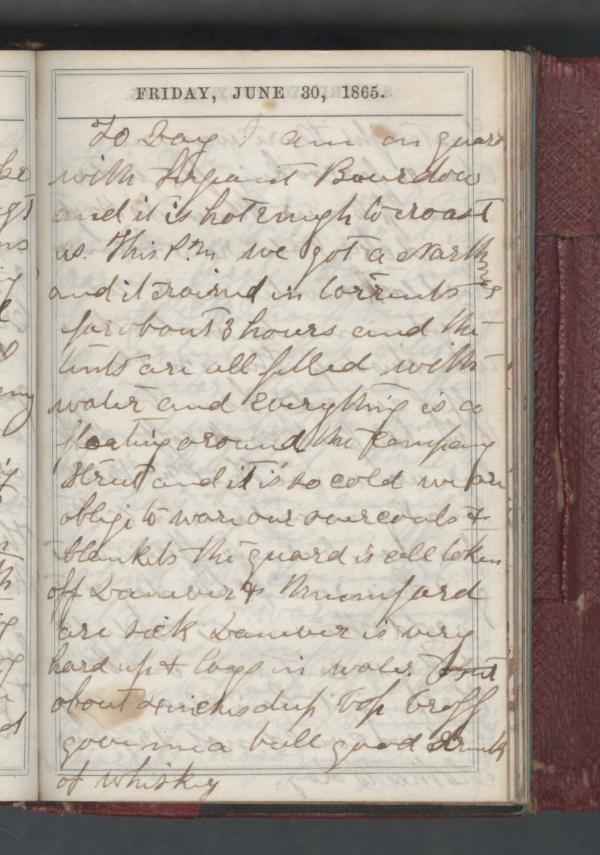 FRIDAY, JUNE 30, 1865.
To Day I am on guard
with Sergeant Bourdow
and it is hot enough to roast
us. This P.m we got a North
and it rained in torrents
for about 3 hours and the
tents are all filled with
water and everything is a
floating around the Company
Street and it is so cold we are
oblige to ware our overcoats &
blankets the guard is all taken
off & Mumford
are sick is very
hard up & lays in water
about 4 inches deep
gave me a bull good drink
of whiskey